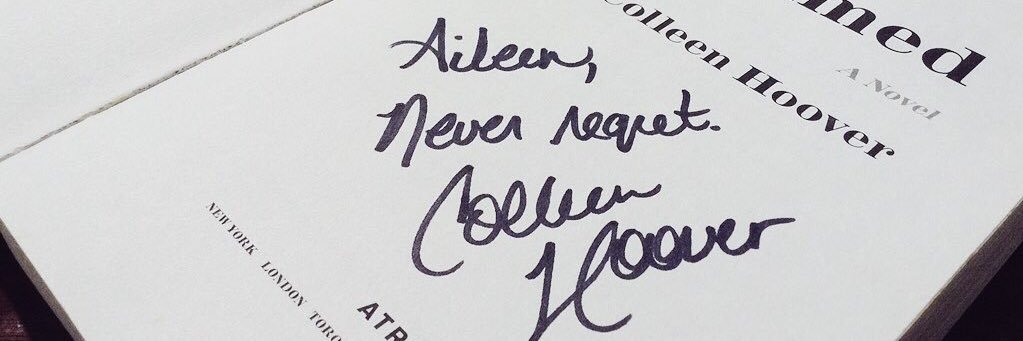 med
Colleen Hoover
A Novel
Aileen,
Never regret.
Colleen
Hoover
NEW YORK LONDON